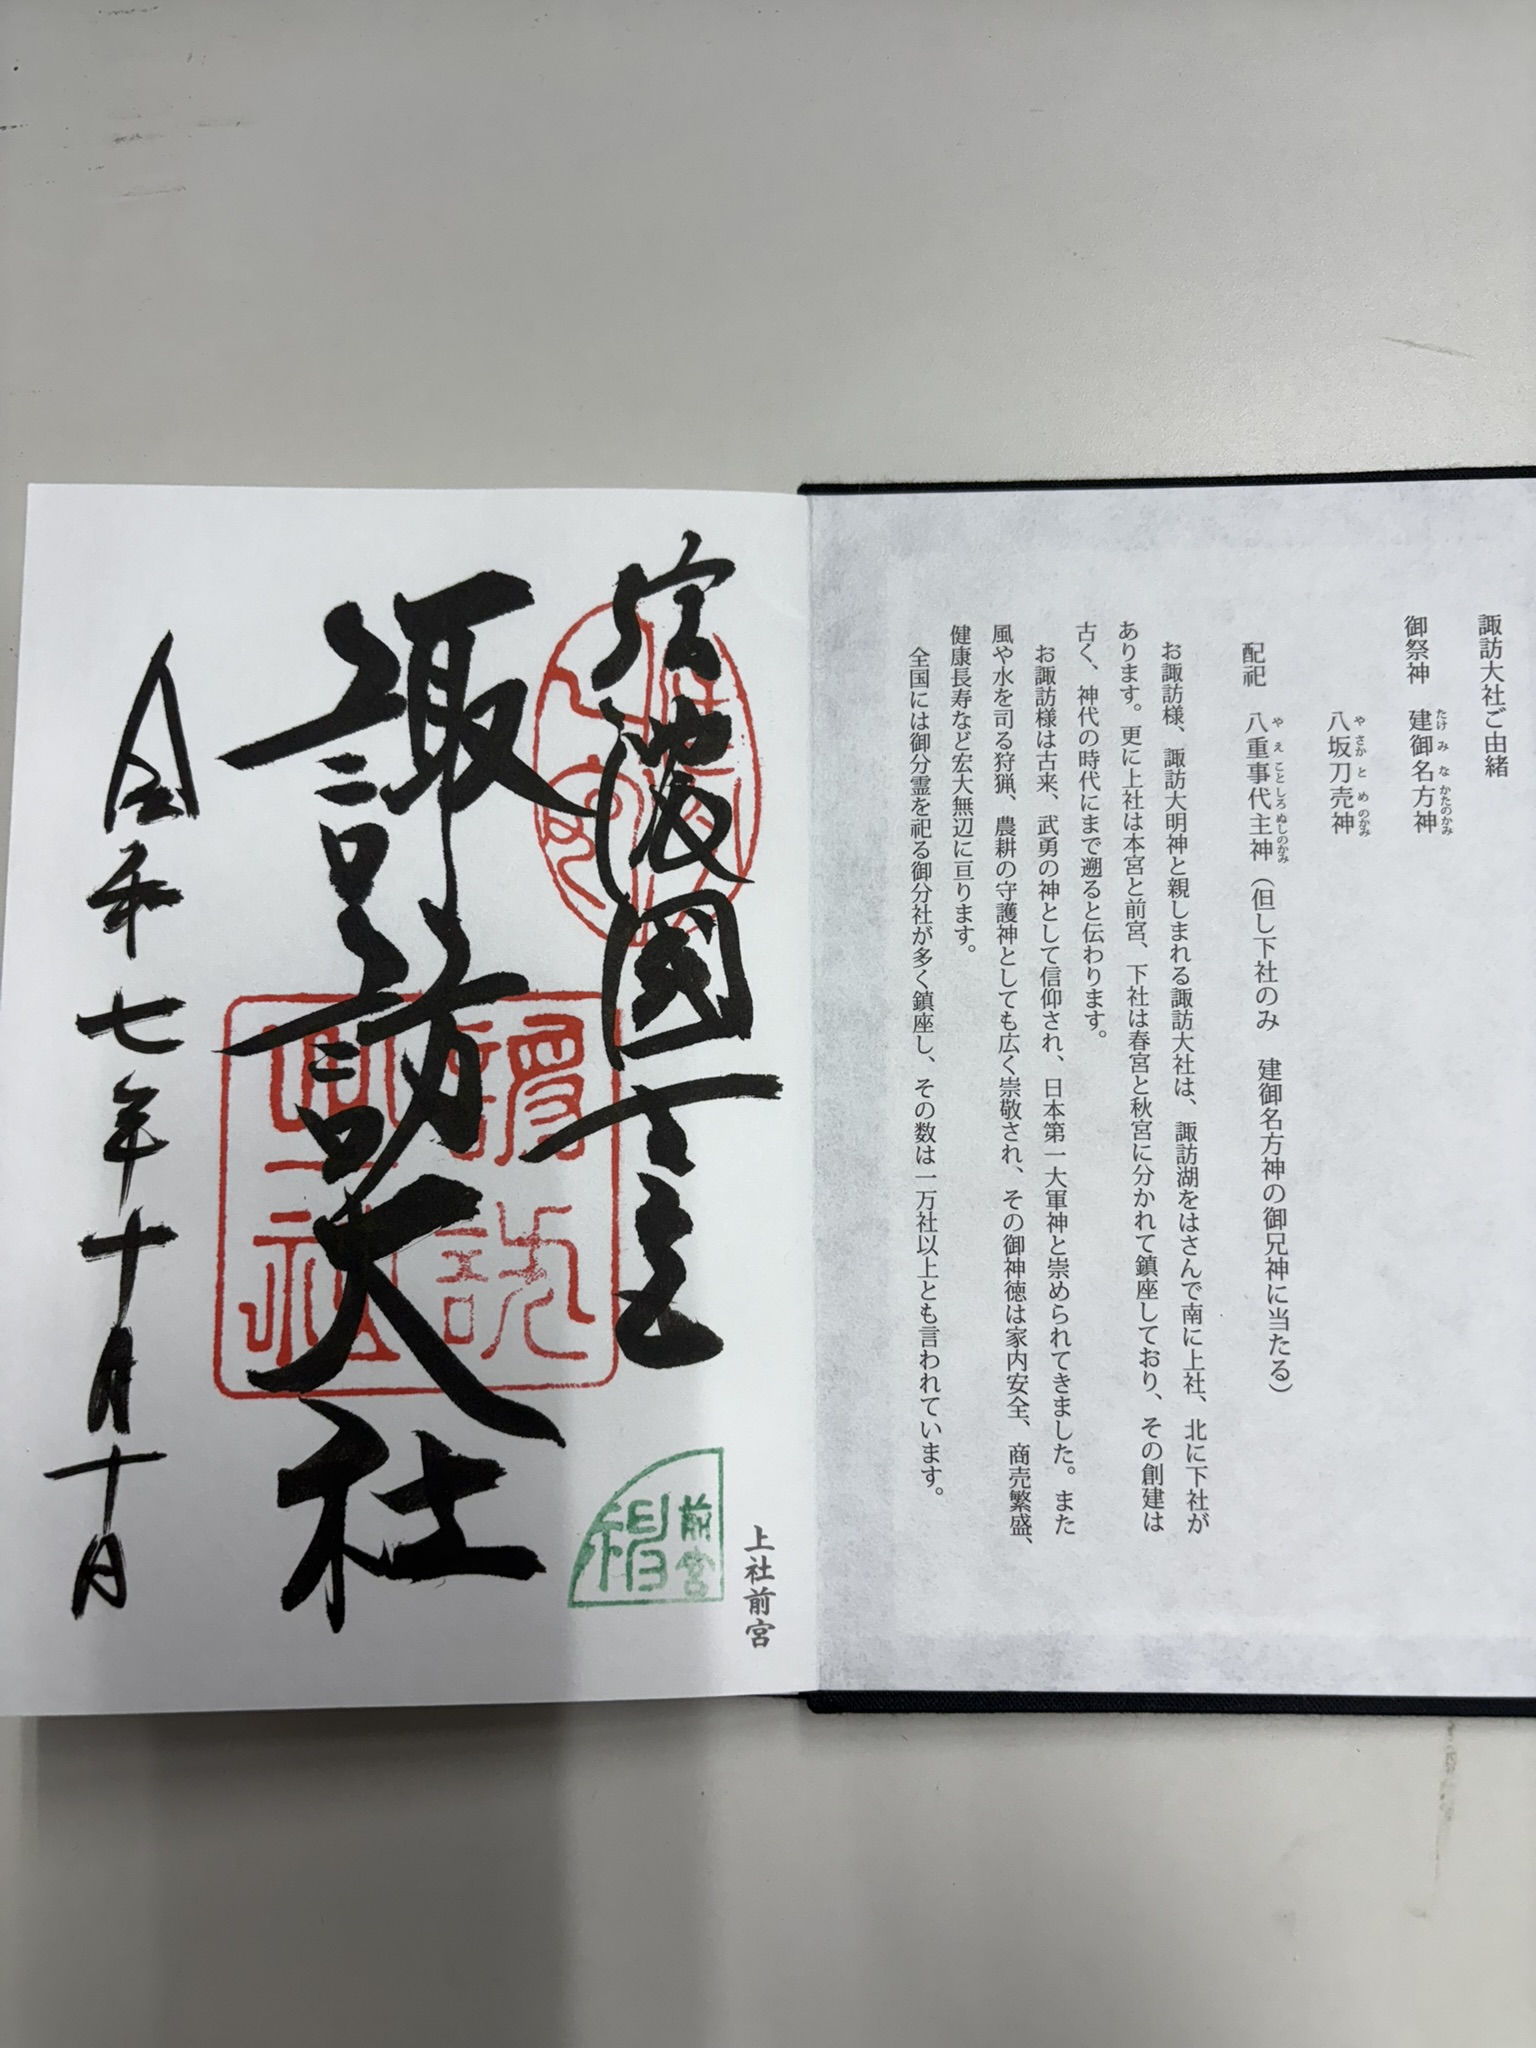 諏訪大社ご由緒
御祭神　建御名方神
たけみなかたのかみ
八坂刀売神
やさかとめのかみ
配祀　八重事代主神（但し下社のみ　建御名方神の御兄神に当たる）
やえことしろぬしのかみ
お諏訪様、諏訪大明神と親しまれる諏訪大社は、諏訪湖をはさんで南に上社、北に下社が
あります。更に上社は本宮と前宮、下社は春宮と秋宮に分かれて鎮座しており、その創建は
古く、神代の時代にまで遡ると伝わります。
お諏訪様は古来、武勇の神として信仰され、日本第一大軍神と崇められてきました。また
風や水を司る狩猟、農耕の守護神としても広く崇敬され、その御神徳は家内安全、商売繁盛、
健康長寿など宏大無辺に亘ります。
全国には御分霊を祀る御分社が多く鎮座し、その数は一万社以上とも言われています。
上社前宮
信濃國一之宮
前宮
諏訪大社
令和七年十月十日